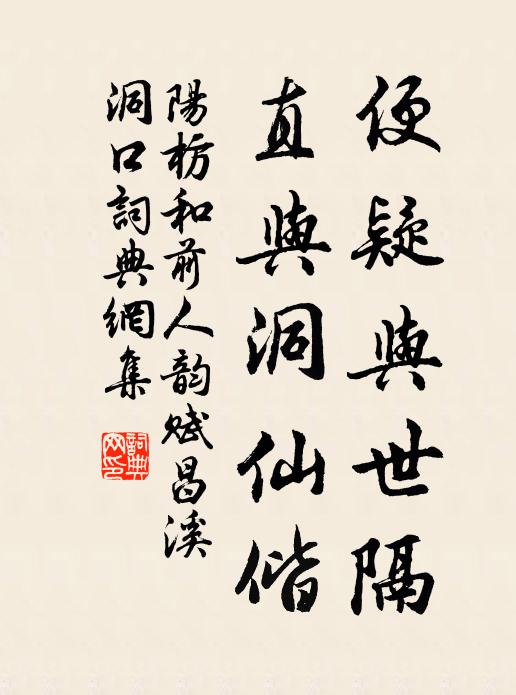 便疑與世隔
直與洞仙偕
陽枋和前人韵賦昌溪
洞口詞典網集
詞典網印